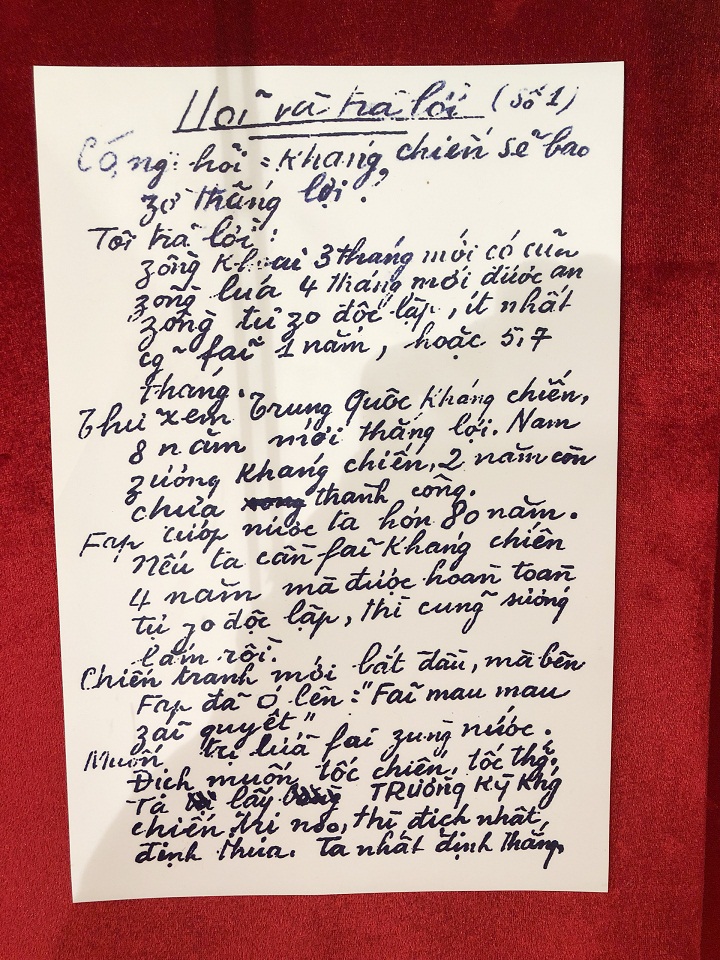 Hỏi và trả lời (số 1)
Có ng: hỏi: Kháng chiến sẽ bao
zờ thắng lợi?
Tôi trả lời:
zồng khoai 3 tháng mới có củ
zồng lúa 4 tháng mới được ăn
zồng tự zo độc lập, ít nhất
cg~ fải 1 năm, hoặc 5, 7
tháng.
Thử xem Trung Quốc kháng chiến,
8 năm mới thắng lợi. Nam
zương kháng chiến, 2 năm còn
chưa thành công.
Fáp cướp nước ta hơn 80 năm.
Nếu ta cần fải kháng chiến
4 năm mà được hoàn toàn
tự zo độc lập, thì cũng sướng
lắm rồi.
Chiến tranh mới bắt đầu, mà bên
Fáp đã ó lên: "Fải mau mau
zải quyết"
Muốn trị lửa fải zùng nước.
Địch muốn tốc chiến, tốc thg.
Ta lấy TRƯỜNG KỲ Khg
chiến trị nó, thì địch nhất
định thua. Ta nhất định thắng